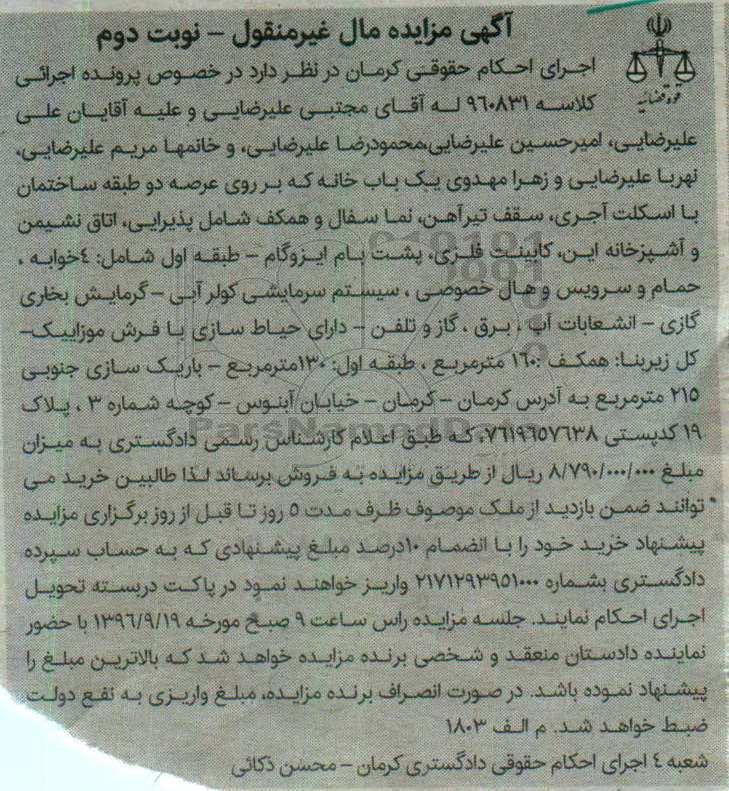 آگهی مزایده مال غیرمنقول – نوبت دوم
قوه قضائیه
اجرای احکام حقوقی کرمان در نظر دارد در خصوص پرونده اجرائی
کلاسه ۹۶۰۸۳۱ له آقای مجتبی علیرضایی و علیه آقایان علی
علیرضایی، امیرحسین علیرضایی،محمودرضا علیرضایی، و خانمها مریم علیرضایی،
نهریا علیرضایی و زهرا مهدوی یک باب خانه که بر روی عرصه دو طبقه ساختمان
با اسکلت آجری، سقف تیرآهن، نما سفال و همکف شامل پذیرایی، اتاق نشیمن
و آشپزخانه اپن، کابینت فلزی، پشت بام ایزوگام – طبقه اول شامل: ۴خوابه ،
حمام و سرویس و هال خصوصی ، سیستم سرمایشی کولر آبی – گرمایش بخاری
گازی – انشعابات آب ، برق ، گاز و تلفن – دارای حیاط سازی با فرش موزاییک–
کل زیربنا: همکف :۱۶۰ مترمربع ، طبقه اول: ۱۳۰مترمربع – باریک سازی جنوبی
۲۱۵ مترمربع به آدرس کرمان – کرمان – خیابان آبنوس – کوچه شماره ۳ ، پلاک
۱۹ کدپستی ۷۶۱۹۶۵۷۶۳۸، که طبق اعلام کارشناس رسمی دادگستری به میزان
مبلغ ۸/۷۹۰/۰۰۰/۰۰۰ ریال از طریق مزایده به فروش برساند لذا طالبین خرید می
توانند ضمن بازدید از ملک موصوف ظرف مدت ۵ روز تا قبل از روز برگزاری مزایده
پیشنهاد خرید خود را با انضمام ۱۰درصد مبلغ پیشنهادی که به حساب سپرده
دادگستری بشماره ۲۱۷۱۲۹۳۹۵۱۰۰۰ واریز خواهند نمود در پاکت دربسته تحویل
اجرای احکام نمایند. جلسه مزایده راس ساعت ۹ صبح مورخه ۱۳۹۶/۹/۱۹ با حضور
نماینده دادستان منعقد و شخصی برنده مزایده خواهد شد که بالاترین مبلغ را
پیشنهاد نموده باشد. در صورت انصراف برنده مزایده، مبلغ واریزی به نفع دولت
ضبط خواهد شد. م الف ۱۸۰۳
شعبه ۴ اجرای احکام حقوقی دادگستری کرمان – محسن ذکائی
ParsNamadData